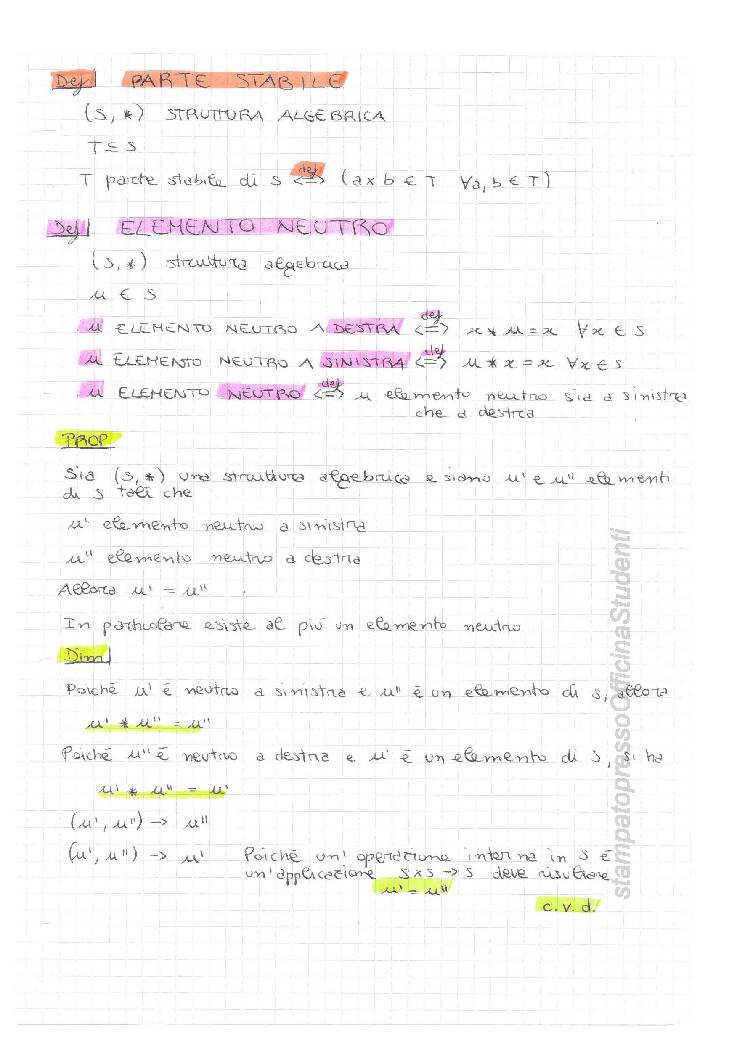 Def PARTE STABILE
(S, *) STRUTTURA ALGEBRICA
T ⊆ S
T parte stabile di S <=>def (a x b ∈ T ∀a, b ∈ T)
Def ELEMENTO NEUTRO
(S, *) struttura algebrica
u ∈ S
u ELEMENTO NEUTRO A DESTRA <=>def x * u = x ∀x ∈ S
u ELEMENTO NEUTRO A SINISTRA <=>def u * x = x ∀x ∈ S
u ELEMENTO NEUTRO <=>def u elemento neutro sia a sinistra
che a destra
PROP
Sia (S, *) una struttura algebrica e siano u' e u'' elementi
di S tali che
u' elemento neutro a sinistra
u'' elemento neutro a destra
Allora u' = u''
In particolare esiste al più un elemento neutro
Dim
Poiché u' è neutro a sinistra e u'' è un elemento di S, allora
u' * u'' = u''
Poiché u'' è neutro a destra e u' è un elemento di S, si ha
u' * u'' = u'
(u', u'') -> u''
(u', u'') -> u' Poiché un' operazione interna in S è
un'applicazione S x S -> S deve risultare
u' = u''
c.v.d.
stampatopressoOfficinaStudenti